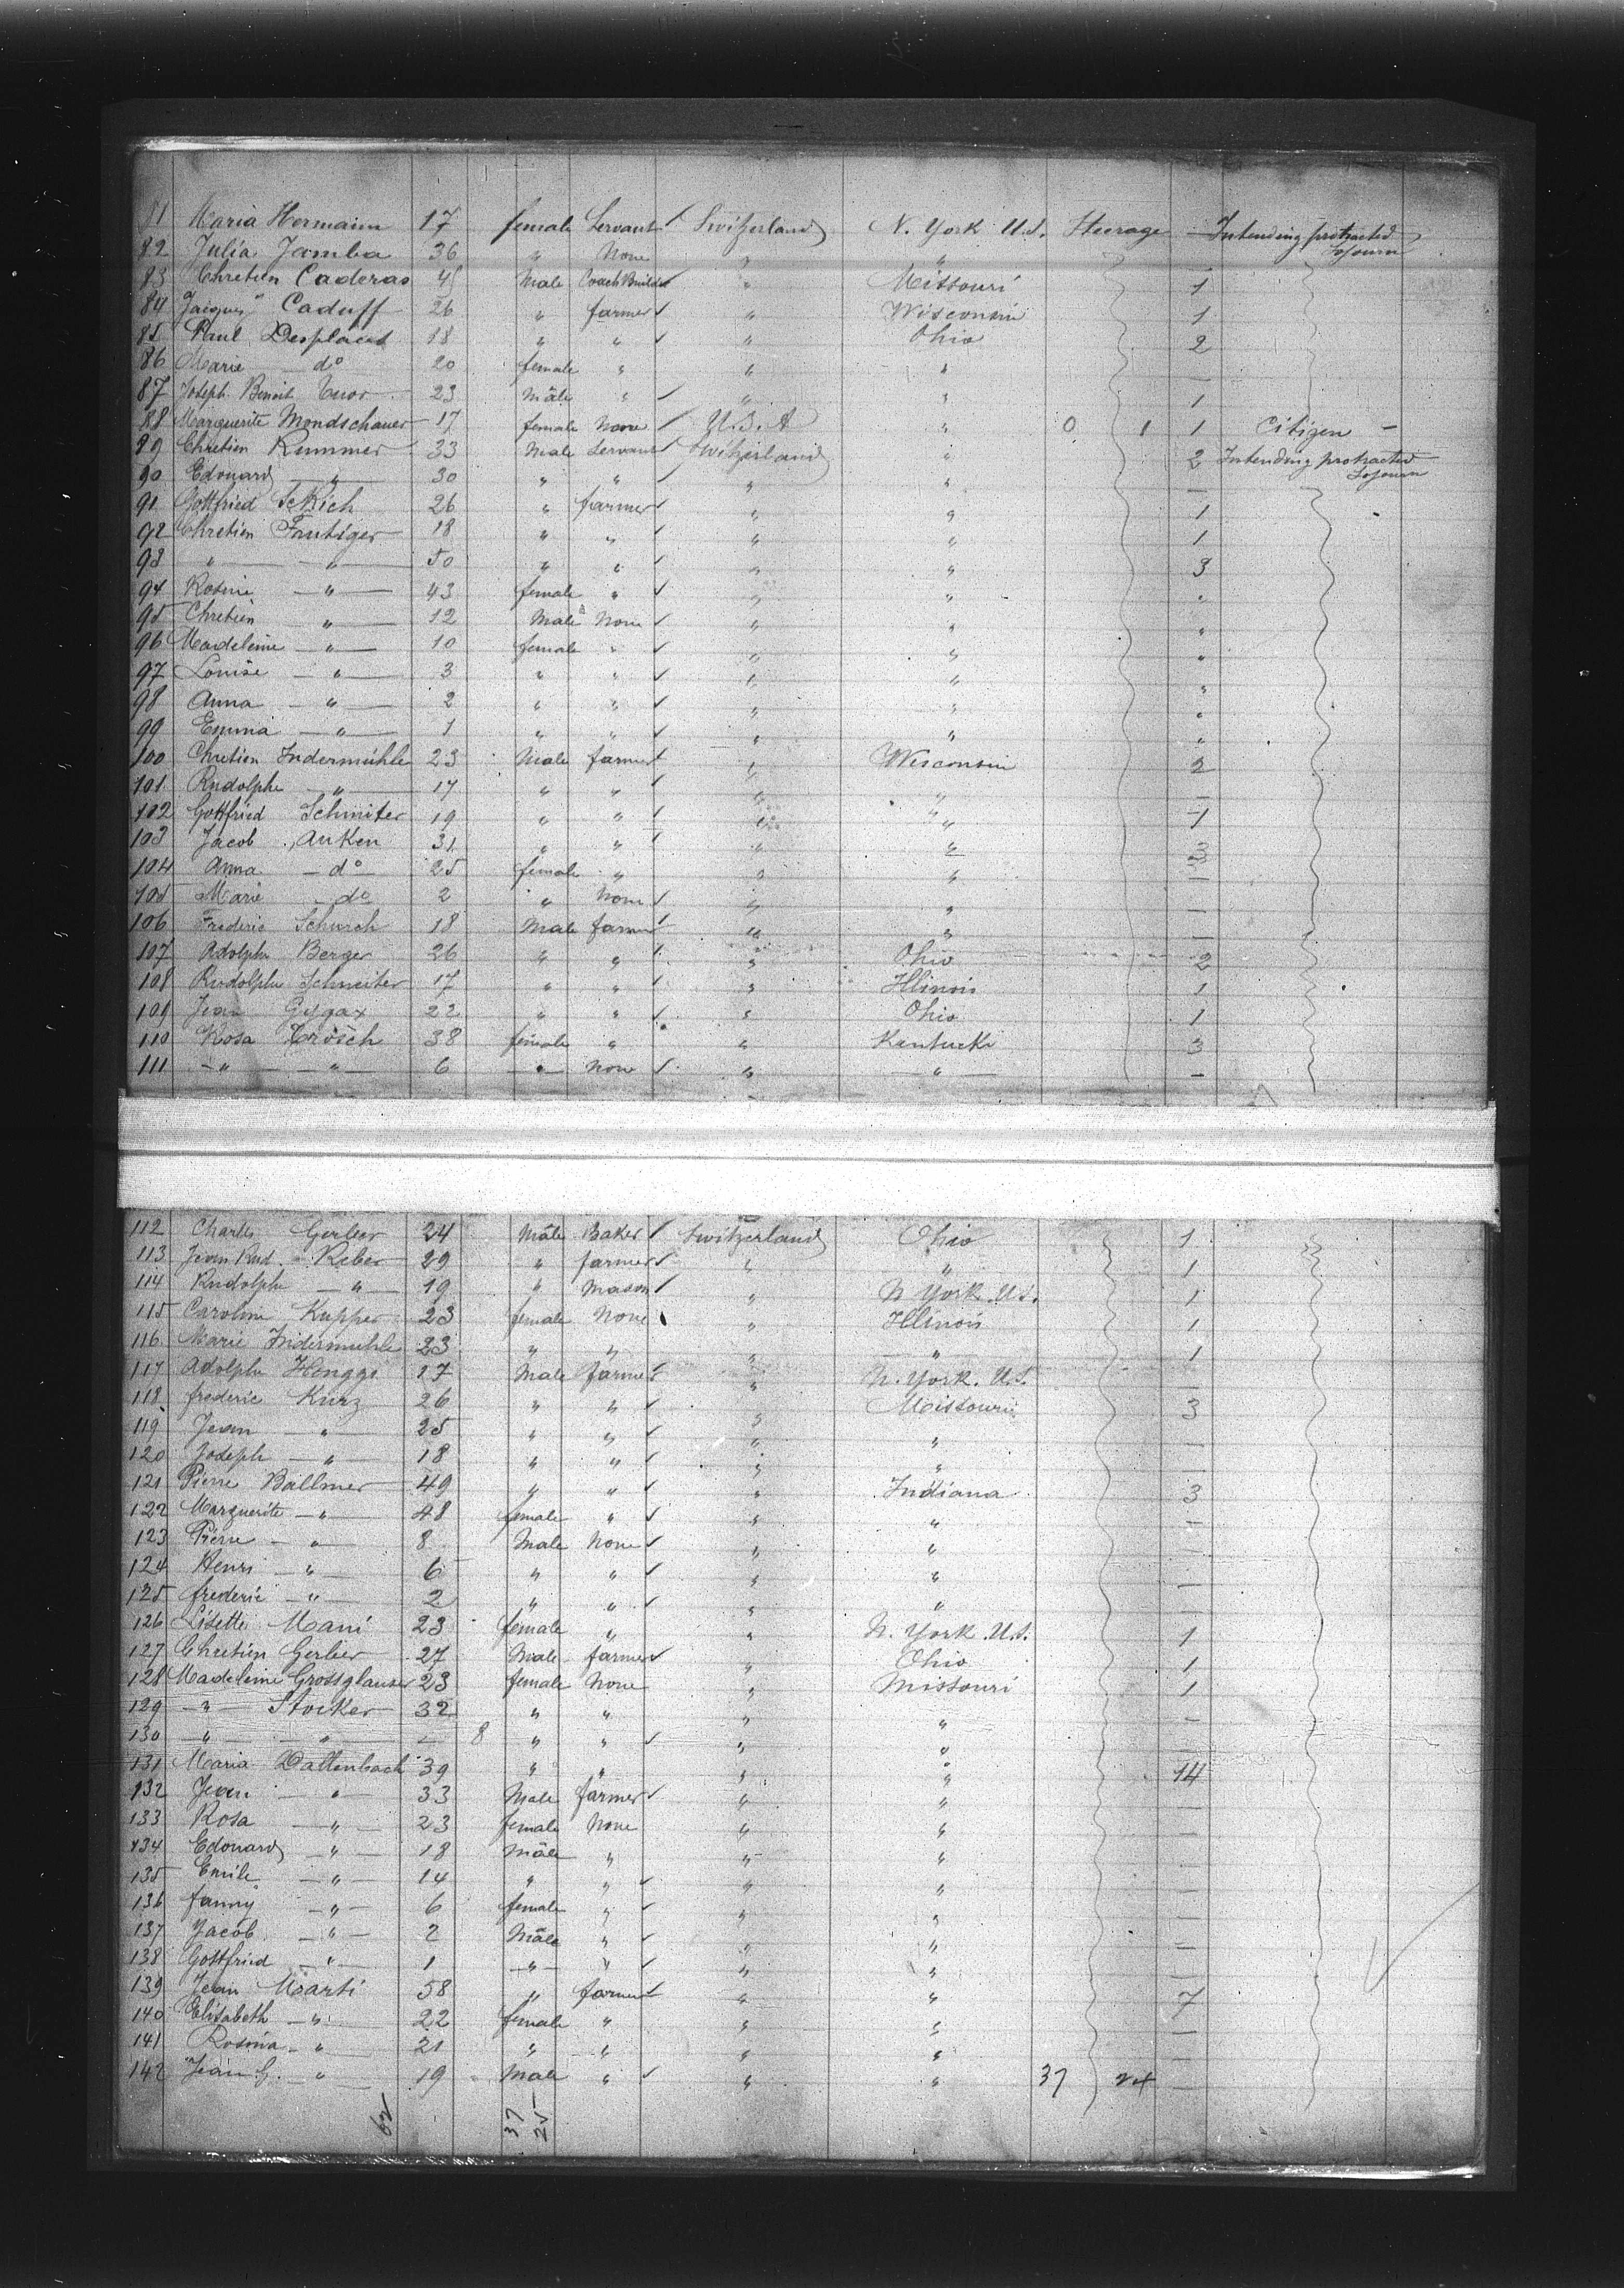 81 Maria Hermann 17 female Servant ✓ Switzerland N. York U.S. Steerage — Intending protracted Sojourn
82 Julia Jamba 36 " None " "
83 Chretien Caderas 45 Male Coach Builder ✓ " Missouri 1
84 Jacques Caduff 26 " farmer ✓ " Wisconsin 1
85 Paul Desplaces 18 " " ✓ " Ohio 2
86 Marie — do 20 female " " " —
87 Joseph Benoit Tuor 23 Male " ✓ " " 1
88 Marguerite Mondschauer 17 female None ✓ U.S.A " 0 1 1 Citizen —
89 Chretien Rummer 33 Male Servant Switzerland " 2 Intending protracted Sojourn
90 Edouard — " — 30 " " ✓ " " —
91 Gottfried 26 " farmer ✓ " " 1
92 Chretien Frutiger 18 " " ✓ " " 1
93 " — " — 50 " " ✓ " " 3
94 Rosine — " — 43 female " ✓ " " "
95 Chretien " — 12 Male None ✓ " " "
96 Madeleine — " — 10 female " ✓ " " "
97 Louise — " — 3 " " ✓ " " "
98 Anna — " — 2 " " ✓ " " "
99 Emma — " — 1 " " ✓ " " "
100 Chretien Indermühle 23 Male farmer " Wisconsin 2
101 Rudolphe — " — 17 " " ✓ " " —
102 Gottfried Schmiter 19 " " ✓ " " 1
103 Jacob Anken 31 " " ✓ " " 3
104 Anna — do 25 female " " " —
105 Marie — do 2 " None ✓ " " —
106 Frederic Schurch 18 Male farmer " " —
107 Adolphe Berger 26 " " ✓ " Ohio 2
108 Rudolphe Schneiter 17 " " ✓ " Illinois 1
109 Jean Gygax 22 " " ✓ " Ohio 1
110 Rosa Trösch 38 female " " Kentucki 3
111 — " — " — 6 — " None ✓ " — " — —
112 Charles Gerber 24 Male Baker ✓ Switzerland Ohio 1
113 Jean Rud. Reber 29 " farmer ✓ " " 1
114 Rudolphe — " — 19 " Mason ✓ " N York U.S. 1
115 Caroline Kupper 23 female None " Illinois 1
116 Marie Indermuhle 23 " " " " 1
117 Adolphe Henggi 17 Male farmer " N. York. U.S. —
118 frederic Kurz 26 " " ✓ " Missouri 3
119 Jean — " 25 " " ✓ " " —
120 Joseph — " — 18 " " ✓ " " —
121 Pierre Ballmer 49 " " ✓ " Indiana 3
122 Marguerite — " — 48 female " ✓ " " —
123 Pierre — " — 8 Male None ✓ " " —
124 Henri — " — 6 " " ✓ " " —
125 frederic — " — 2 " " ✓ " " —
126 Lisette Mani 23 female " " N. York U.S. 1
127 Chretien Gerber 27 Male farmer ✓ " Ohio 1
128 Madeleine Grossglauser 23 female None " Missouri 1
129 — " — Stocker 32 " " " " —
130 — " — " — 8 " " ✓ " " —
131 Maria Dallenbach 39 " " " " 14
132 Jean — " 33 Male farmer ✓ " " —
133 Rosa — " — 23 female None " " —
134 Edouard — " — 18 Male " " " —
135 Emile — " — 14 " " ✓ " " —
136 fanny — " — 6 female " ✓ " " —
137 Jacob — " — 2 Male " ✓ " " —
138 Gottfried — " — 1 — " — " ✓ " " —
139 Jean Marti 58 " farmer " " 7
140 Elisabeth — " 22 female " " " —
141 Rosina — " 21 " " " " —
142 Jean G. — " 19 Male " ✓ " " 37 24 —
62 37 25